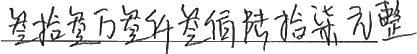 叁拾叁万叁仟叁佰陆拾柒元整